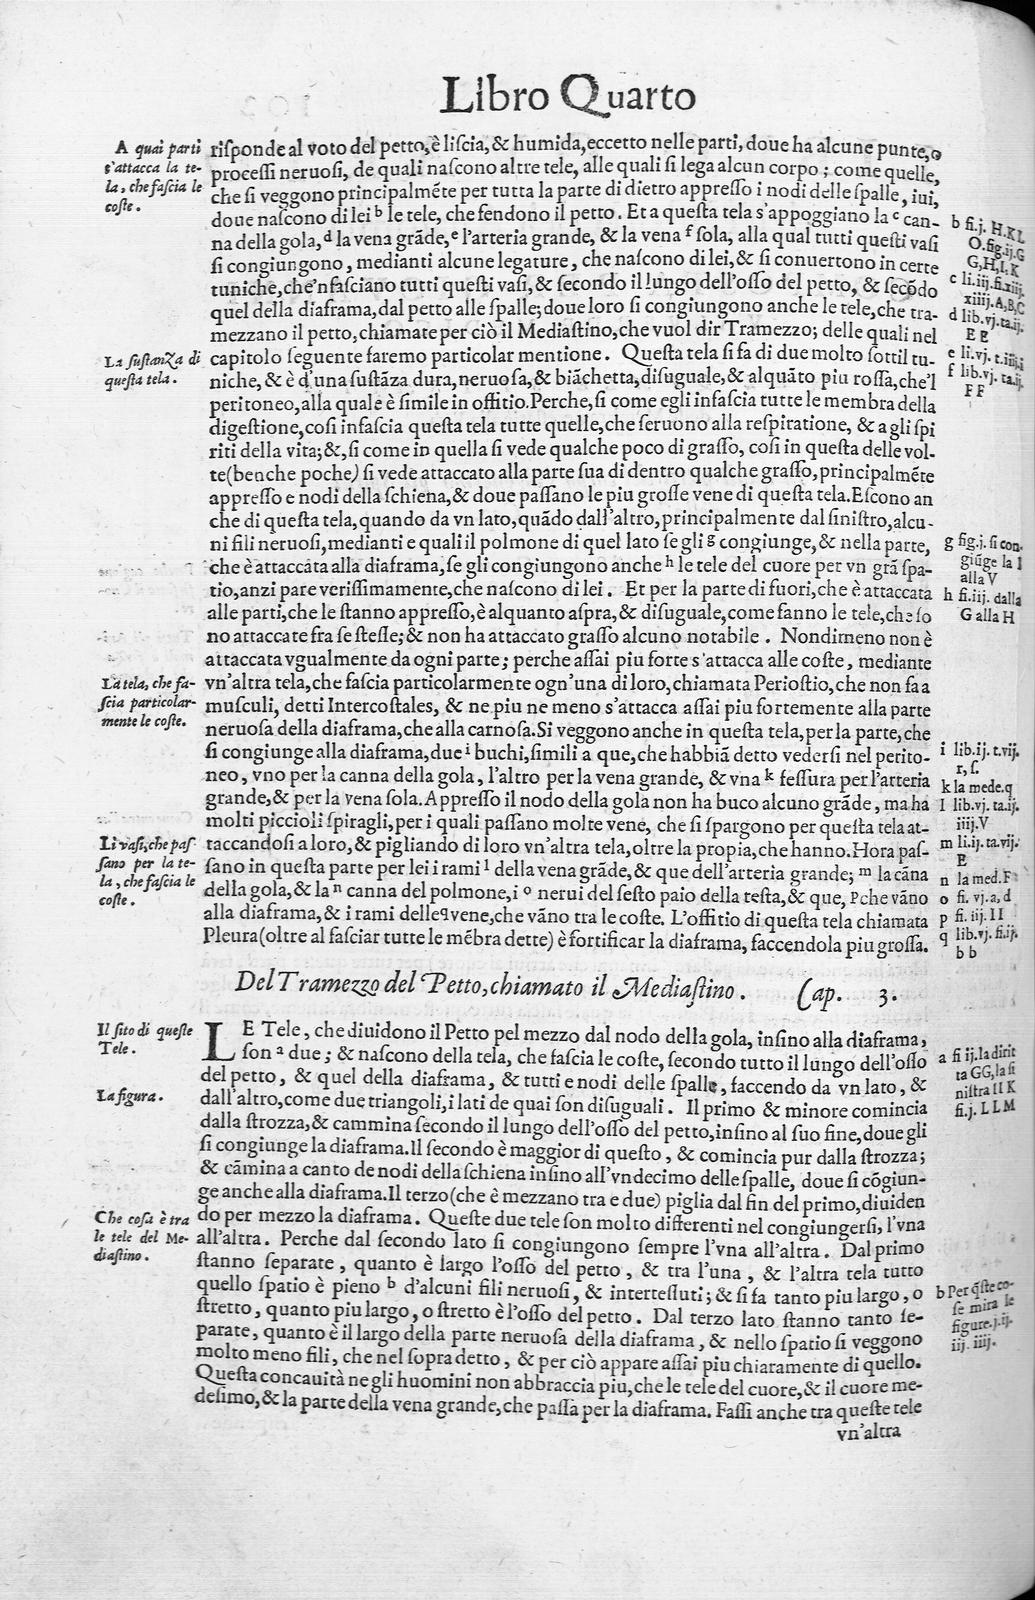 Libro Quarto
A quai parti
s'attacca la te-
la, che faſcia le
coſte.
riſponde al voto del petto, è liſcia, & humida, eccetto nelle parti, doue ha alcune punte, o
proceſſi neruoſi, de quali naſcono altre tele, alle quali ſi lega alcun corpo; come quelle,
che ſi veggono principalmēte per tutta la parte di dietro appreſſo i nodi delle ſpalle, iui,
doue naſcono di lei b le tele, che fendono il petto. Et a queſta tela s'appoggiano la c can-
na della gola, d la vena grāde, e l'arteria grande, & la vena f ſola, alla qual tutti queſti vaſi
ſi congiungono, medianti alcune legature, che naſcono di lei, & ſi conuertono in certe
tuniche, che'nfaſciano tutti queſti vaſi, & ſecondo il lungo dell'oſſo del petto, & ſecōdo
quel della diaframa, dal petto alle ſpalle; doue loro ſi congiungono anche le tele, che tra-
mezzano il petto, chiamate per ciò il Mediaſtino, che vuol dir Tramezzo; delle quali nel
capitolo ſeguente faremo particolar mentione. Queſta tela ſi fa di due molto ſottil tu-
niche, & è d'una ſuſtāza dura, neruoſa, & biāchetta, diſuguale, & alquāto piu roſſa, che'l
peritoneo, alla quale è ſimile in offitio. Perche, ſi come egli infaſcia tutte le membra della
digeſtione, coſi infaſcia queſta tela tutte quelle, che ſeruono alla reſpiratione, & a gli ſpi
riti della vita; &, ſi come in quella ſi vede qualche poco di graſſo, coſi in queſta delle vol-
te (benche poche) ſi vede attaccato alla parte ſua di dentro qualche graſſo, principalmēte
appreſſo e nodi della ſchiena, & doue paſſano le piu groſſe vene di queſta tela. Eſcono an
che di queſta tela, quando da vn lato, quādo dall'altro, principalmente dal ſiniſtro, alcu-
ni fili neruoſi, medianti e quali il polmone di quel lato ſe gli g congiunge, & nella parte,
che è attaccata alla diaframa, ſe gli congiungono anche h le tele del cuore per vn grā ſpa-
tio, anzi pare veriſſimamente, che naſcono di lei. Et per la parte di fuori, che è attaccata
alle parti, che le ſtanno appreſſo, è alquanto aſpra, & diſuguale, come fanno le tele, che ſo
no attaccate fra ſe ſteſſe; & non ha attaccato graſſo alcuno notabile. Nondimeno non è
attaccata vgualmente da ogni parte; perche aſſai piu forte s'attacca alle coſte, mediante
vn'altra tela, che faſcia particolarmente ogn'una di loro, chiamata Perioſtio, che non fa a
muſculi, detti Intercoſtales, & ne piu ne meno s'attacca aſſai piu fortemente alla parte
neruoſa della diaframa, che alla carnoſa. Si veggono anche in queſta tela, per la parte, che
ſi congiunge alla diaframa, due i buchi, ſimili a que, che habbiā detto vederſi nel perito-
neo, vno per la canna della gola, l'altro per la vena grande, & vna k feſſura per l'arteria
grande, & per la vena ſola. Appreſſo il nodo della gola non ha buco alcuno grāde, ma ha
molti piccioli ſpiragli, per i quali paſſano molte vene, che ſi ſpargono per queſta tela at-
taccandoſi a loro, & pigliando di loro vn'altra tela, oltre la propia, che hanno. Hora paſ-
ſano in queſta parte per lei i rami l della vena grāde, & que dell'arteria grande; m la cāna
della gola, & la n canna del polmone, i o nerui del ſeſto paio della teſta, & que, p che vāno
alla diaframa, & i rami delle q vene, che vāno tra le coſte. L'offitio di queſta tela chiamata
Pleura (oltre al faſciar tutte le mēbra dette) è fortificar la diaframa, faccendola piu groſſa.
La ſuſtanza di
queſta tela.
La tela, che fa-
ſcia particolar-
mente le coſte.
Li vaſi, che paſ
ſano per la te-
la, che faſcia le
coſte.
b fi.j. H.K L
O.fig.ij.G
G,H,I,K
c li.iij.fi.xiij.
xiiij.A,B,C
d lib.vj.ta.ij.
E E
e li.vj. t.iiij.i
f lib.vj. ta.ij.
F F
g fig.j. ſi con-
giūge la I
alla V
h fi.iij. dalla
G alla H
i lib.ij. t.vij.
r, ſ.
k la mede.q
l lib.vj. ta.ij.
iiij.V
m li.ij.ta.vij.
E
n la med.F
o fi. vj.a, d
p fi. iij. II
q lib.vj. fi.ij.
b b
Del Tramezzo del Petto, chiamato il Mediaſtino. Cap. 3.
Il ſito di queſte
Tele.
La figura.
Che coſa è tra
le tele del Me-
diaſtino.
LE Tele, che diuidono il Petto pel mezzo dal nodo della gola, inſino alla diaframa,
ſon a due; & naſcono della tela, che faſcia le coſte, ſecondo tutto il lungo dell'oſſo
del petto, & quel della diaframa, & tutti e nodi delle ſpalle, faccendo da vn lato, &
dall'altro, come due triangoli, i lati de quai ſon diſuguali. Il primo & minore comincia
dalla ſtrozza, & cammina ſecondo il lungo dell'oſſo del petto, inſino al ſuo fine, doue gli
ſi congiunge la diaframa. Il ſecondo è maggior di queſto, & comincia pur dalla ſtrozza;
& cāmina a canto de nodi della ſchiena inſino all'vndecimo delle ſpalle, doue ſi cōgiun-
ge anche alla diaframa. Il terzo (che è mezzano tra e due) piglia dal fin del primo, diuiden
do per mezzo la diaframa. Queſte due tele ſon molto differenti nel congiungerſi, l'vna
all'altra. Perche dal ſecondo lato ſi congiungono ſempre l'vna all'altra. Dal primo
ſtanno ſeparate, quanto è largo l'oſſo del petto, & tra l'una, & l'altra tela tutto
quello ſpatio è pieno b d'alcuni fili neruoſi, & interteſſuti; & ſi fa tanto piu largo, o
ſtretto, quanto piu largo, o ſtretto è l'oſſo del petto. Dal terzo lato ſtanno tanto ſe-
parate, quanto è il largo della parte neruoſa della diaframa, & nello ſpatio ſi veggono
molto meno fili, che nel ſopra detto, & per ciò appare aſſai piu chiaramente di quello.
Queſta concauità ne gli huomini non abbraccia piu, che le tele del cuore, & il cuore me-
deſimo, & la parte della vena grande, che paſſa per la diaframa. Faſſi anche tra queſte tele
vn'altra
a fi ij. la dirit
ta GG, la ſi
niſtra II K
fi.j. L L M
b Per q̄ſte co-
ſe mira le
figure.j.ij.
iij. iiij.